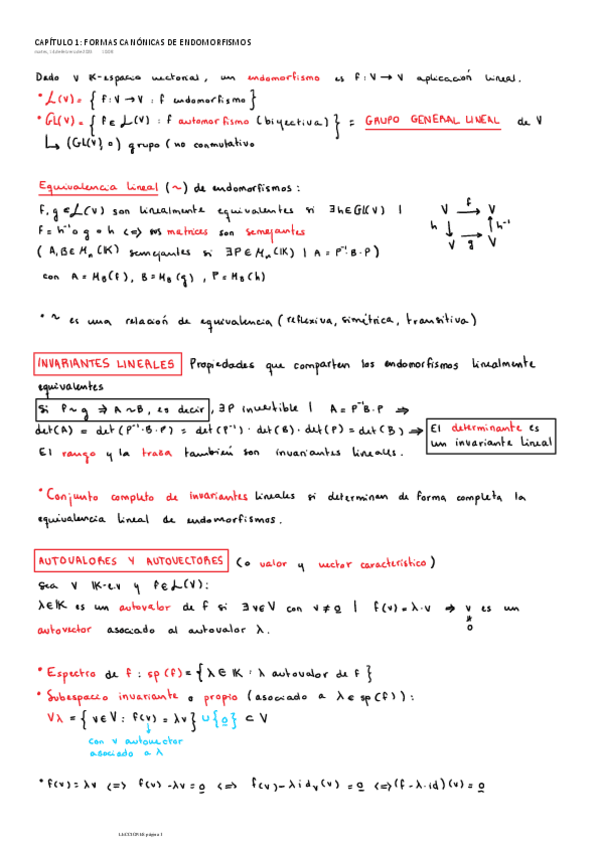 CAPÍTULO 1: FORMAS CANÓNICAS DE ENDOMORFISMOS
Dado V K-espacio vectorial, un endomorfismo es f: V → V aplicación lineal.
* L(V) = { f: V → V : f endomorfismo }
* GL(V) = { f ∈ L(V) : f automorfismo (biyectiva) } = GRUPO GENERAL LINEAL de V
↳ (GL(V), ∘) grupo (no conmutativo
Equivalencia lineal (~) de endomorfismos:
f, g ∈ L(V) son linealmente equivalentes si ∃ h ∈ GL(V) |
f = h⁻¹ ∘ g ∘ h <=> sus matrices son semejantes
(A, B ∈ Mₙ(K) semejantes si ∃ P ∈ Mₙ(K) | A = P⁻¹·B·P)
con A = M_B(f), B = M_B(g), P = M_B(h)
V f→ V
h ↓ ↑ h⁻¹
V g→ V
* ~ es una relación de equivalencia (reflexiva, simétrica, transitiva)
INVARIANTES LINEALES Propiedades que comparten los endomorfismos linealmente
equivalentes
Si f ~ g ⇒ A ~ B, es decir, ∃ P invertible | A = P⁻¹B·P ⇒
det(A) = det(P⁻¹·B·P) = det(P⁻¹)·det(B)·det(P) = det(B) ⇒ El determinante es
un invariante lineal
El rango y la traza también son invariantes lineales.
* Conjunto completo de invariantes lineales si determinan de forma completa la
equivalencia lineal de endomorfismos.
AUTOVALORES Y AUTOVECTORES (o valor y vector característico)
Sea V K-e.v y f ∈ L(V):
λ ∈ K es un autovalor de f si ∃ v ∈ V con v ≠ 0 | f(v) = λ·v → v es un
≠
0
autovector asociado al autovalor λ.
* Espectro de f: sp(f) = { λ ∈ K : λ autovalor de f }
* Subespacio invariante o propio (asociado a λ ∈ sp(f)):
Vλ = { v ∈ V : f(v) = λv } ∪ {0} ⊂ V
↓
con v autovector
asociado a λ
* f(v) = λv <=> f(v) - λv = 0 <=> f(v) - λ id_V(v) = 0 <=> (f - λ·id)(v) = 0
LECCION 1-6 página 1